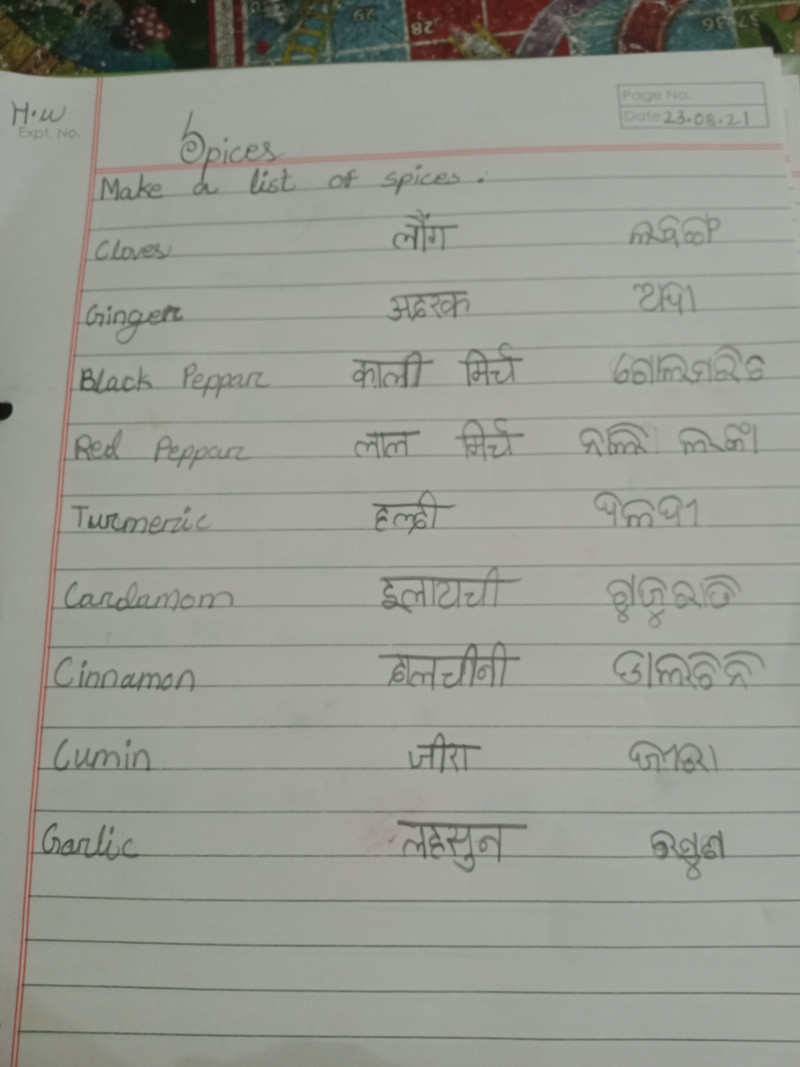 29
28
37 36
H.W
Expt. No.
Page No.
Date 23.08.21
Spices
Make a list of spices.
Cloves लौंग ଲବଙ୍ଗ
Ginger अदरक ଅଦା
Black Peppar काली मिर्च ଗୋଲମରିଚ
Red Peppar लाल मिर्च ନାଲି ଲଙ୍କା
Turmeric हल्दी ହଳଦୀ
Cardamom इलायची ଗୁଜୁରାତି
Cinnamon दालचीनी ଡାଲଚିନି
Cumin जीरा ଜୀରା
Garlic लहसुन ରସୁଣ